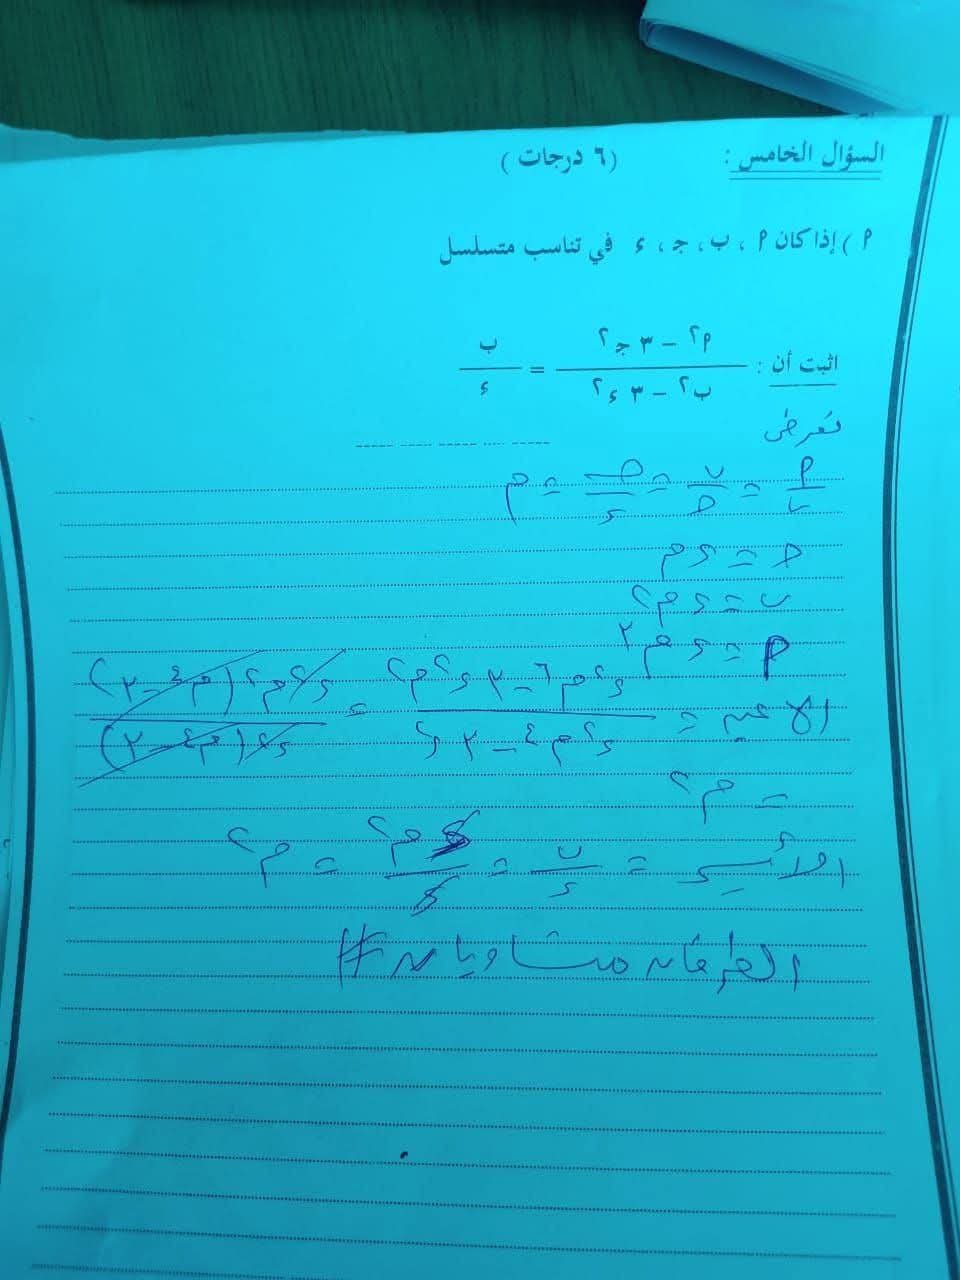 السؤال الخامس : (٦ درجات)
م ) إذا كان م ، ب ، جـ ، ء في تناسب متسلسل
اثبت أن : (م٢ – ٣ جـ٢) / (ب٢ – ٣ ء٢) = ب / ء
نفرض
م/ب = ب/جـ = جـ/ء = م
جـ = ء م
ب = ء م٢
م = ء م٣
الايمن = (ء٢ م٦ – ٣ ء٢ م٢) / (ء٢ م٤ – ٣ ء٢) = ء٢ م٢ (م٤ – ٣) / ء٢ (م٤ – ٣)
= م٢
الأيسر = ب/ء = ء م٢ / ء = م٢
الطرفان متساويان #